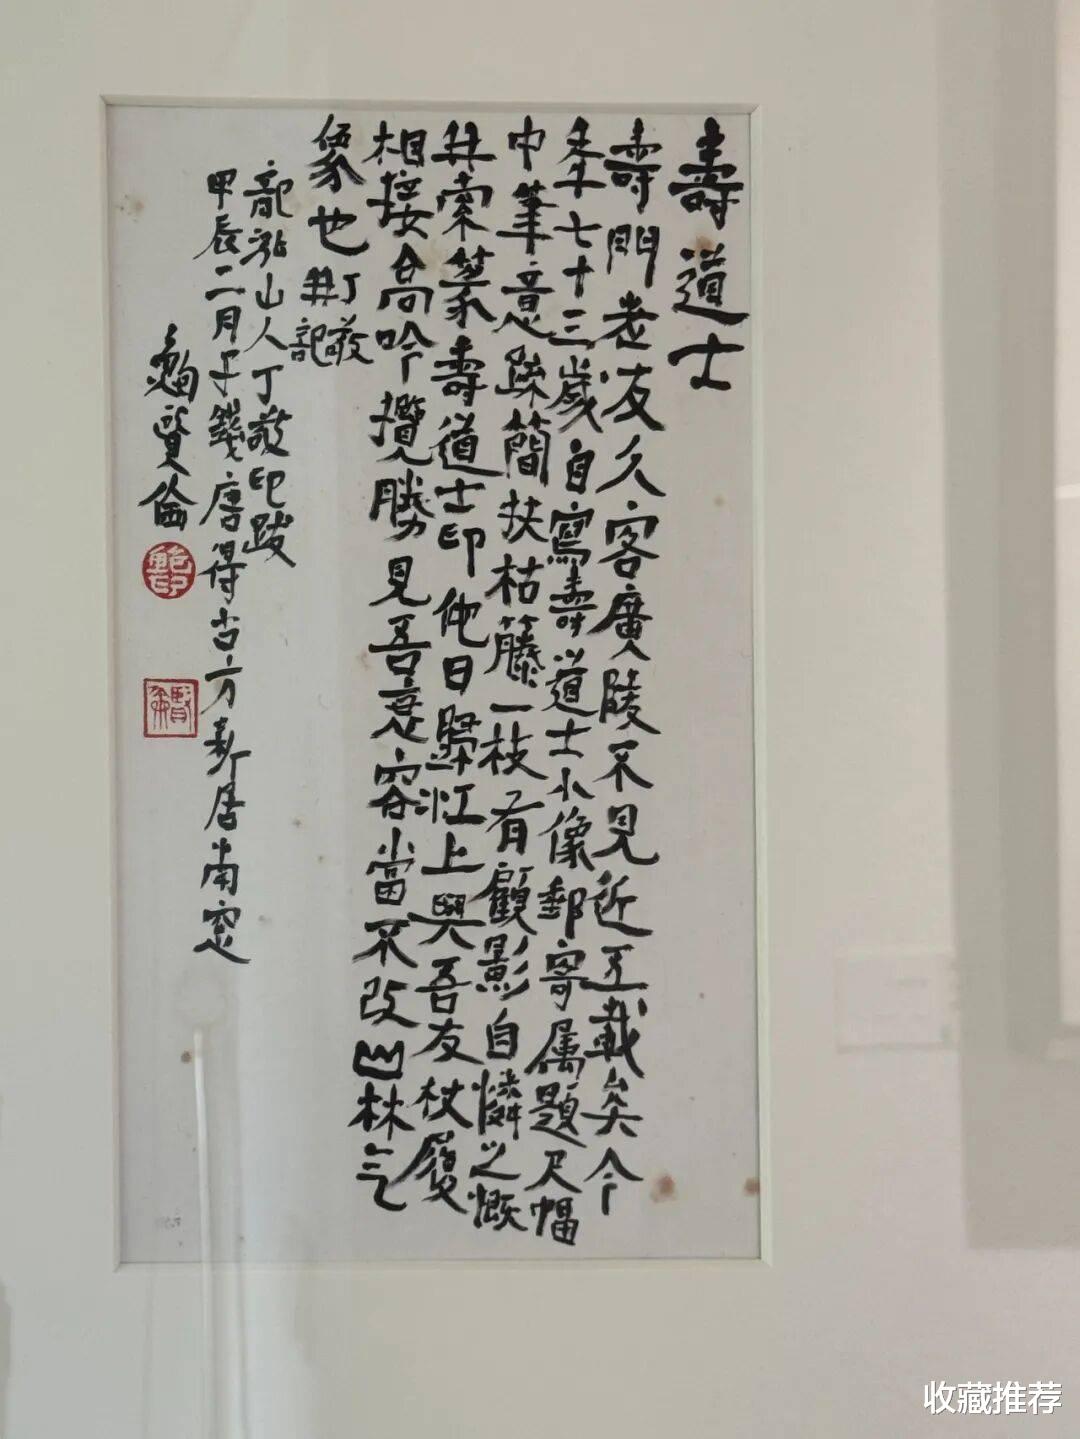 壽道士
壽門老友久客廣陵不見近五載矣今
年七十三歲自寫壽道士小像郵寄属題尺幅
中筆意疏簡扶枯藤一枝有顧影自憐之慨
并索篆壽道士印他日歸江上與吾友杖履
相接高吟攬勝見吾衰容當不改山林气
象也
丁敬
并記
龍泓山人丁敬印跋
甲辰二月于錢唐得古方新居南窗
鮑賢倫
鮑印
賢倫
收藏推荐